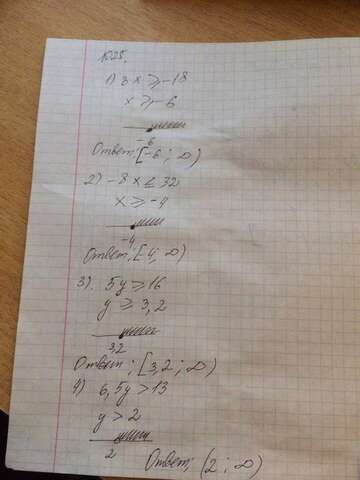 1028.
1) 3x ⩾ -18
x ⩾ -6
-6
Ответ: [-6; ∞)
2) -8x ≤ 32
x ⩾ -4
-4
Ответ: [-4; ∞)
3). 5y ⩾ 16
y ⩾ 3,2
3,2
Ответ: [3,2; ∞)
4) 6,5y > 13
y > 2
2
Ответ: (2; ∞)